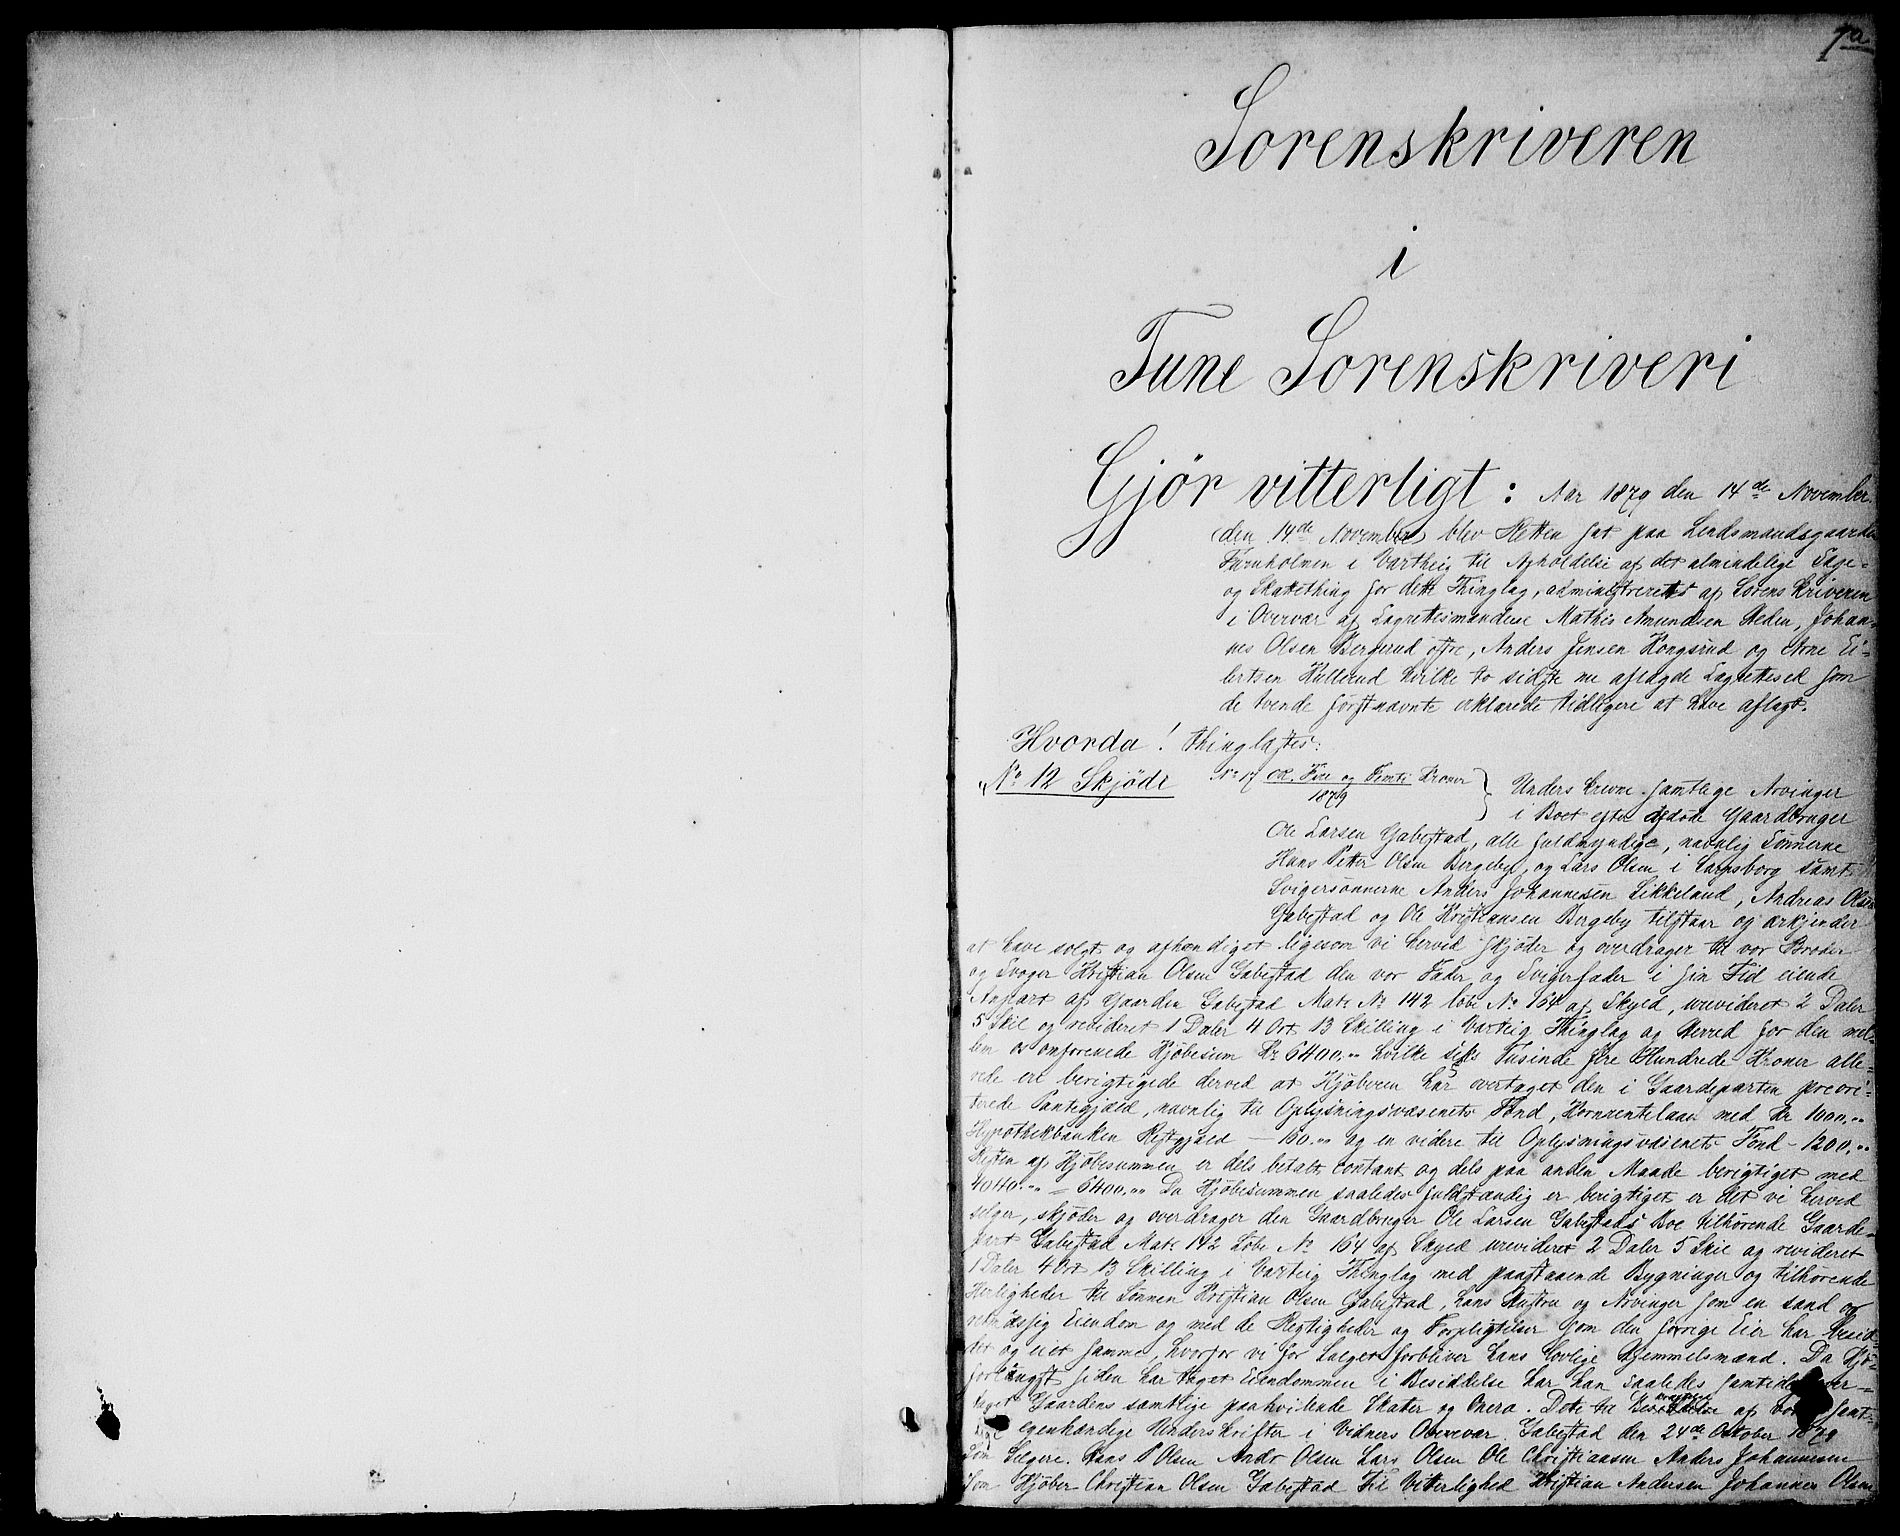 1a
Sorenskriveren
i
Tune Sorenskriveri
Gjör vitterligt: Aar 1879 den 14de November
(den 14de November) blev Retten sat paa Lendsmandsgaarden
Furuholmen i Varteig til Afholdelse af det almindelige Sage-
og Skattething for dette Thinglag, administreret af Sorenskriveren
i Overvær af Lagrettesmændene Mathis Amundsen Heden, Johan-
nes Olsen Bergerud øfre, Anders Jensen Kongsrud og Arne Ei-
lertsen Hullerud hvilke to sidste nu aflagde Lagretteseed som
de tvende førstnævnte erklærede tidligere at have aflagt.
Hvorda! thinglæstes:
"No 12 Skjöde No 17 CR. Fire og Femti Kroner
1879
Underskrevne samtlige Arvinger
i Boet efter afdøde Gaardbruger
Ole Larsen Gabestad, alle fuldmyndige, navnlig Sønnerne
Hans Petter Olsen Bergeby, og Lars Olsen i Sarpsborg samt
Svigersønnerne Anders Johannesen Sikkeland, Andreas Olsen
Gabestad og Ole Kristiansen Bergeby tilstaar og erkjender
at have solgt og afhændiget ligesom vi herved skjøder og overdrager til vor Broder
og Svoger Kristian Olsen Gabestad den vor Fader og Svigerfader i sin Tid eiende
Anpart af Gaarden Gabestad Matr No 142 Løbe No 164 af Skyld, urevideret 2 Daler
5 Skil og revideret 1 Daler 4 Ort 13 Skilling i Varteig Thinglag og Herred for den mel-
lem os omforenede Kjøbesum Kr 6400,"" hvilke seks Tusinde fire Hundrede Kroner alle-
rede ere berigtigede derved at Kjøberen har overtaget den i Gaardeparten priori-
terede Pantegjæld, navnlig til Oplysningsvæsenets Fond, Kornrentelaan med Kr 1000,""
Hypothekbanken Restgjæld — 160."" og en videre til Oplysningsvæsenets Fond - 1200,""
Resten af Kjøbesummen er dels betalt contant og dels paa anden Maade berigtiget med
4040."" = 6400."" Da Kjøbesummen saaledes fuldstændig er berigtiget er det vi herved
selger, skjøder og overdrager den Gaardbruger Ole Larsen Gabestads Boe tilhørende Gaarde-
part Gabestad Matr 142 Løbe No 164 af Skyld urevideret 2 Daler 5 Skil og revideret
1 Daler 4 Ort 13 Skilling i Varteig Thinglag med paastaaende Bygninger og tilhørende
Herligheder til Sønnen Kristian Olsen Gabestad, hans Hustru og Arvinger som en sand og
retmæssig Eiendom og med de Rettigheder og Forpligtelser som den forrige Eier har besid-
det og eiet samme, hvorfor vi for Salget forbliver hans lovlige Hjemmelsmænd. Da Kjø-
forlængst siden har taget Eiendommen i Besiddelse har han saaledes samtidig over-
taget Gaardens samtlige paahvilende Skater og Onera. Dette til af vore samt-
lige egenhændige Underskrifter i Vidners Overvær. Gabestad den 24de Oktober 1879
Som Sælgere. Hans P Olsen Andr Olsen Lars Olsen Ole Christiansen Anders Johannesen
Som Kjøber Christian Olsen Gabestad Til Vitterlighed Kristian Andersen Johannes Olsen